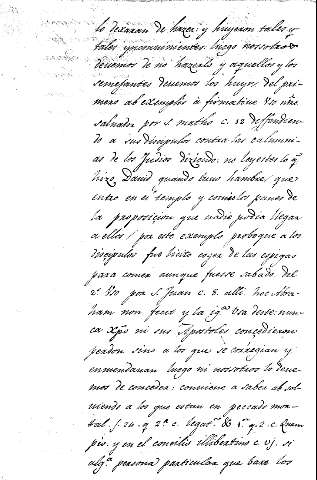 lo dexaran de hazer: y huyeron tales o
tales ynconvinientes. luego nosotros
devemos de no hazerlo y aquellos y los
semejantes devemos los huyr. del pri-
mero ab exemplo à firmative Uso nro.
salvador por s. matheo c. 12 deffendien-
do a sus dicipulos contra las calumni-
as de los Judios diziendo: no leystes lo q.
hizo David quando tuvo hambre/ que
entro en el templo y comio los panes de
la proposicion que nadie podia llegar
a ellos/ por este exemplo probo que a los
discipulos fue licito coger de las espigas
para comer aunque fuesse sabado. del
2.º Uso por s. Juan c. 8. alli. hoc Abra-
ham non fecit y la igª. Usa deste. nun-
ca Xpo. ni sus Apostoles concedieron
perdon sino a los que se corregian y
enmendavan luego ni nosotros lo deve-
mos de conceder: conviene a saber absol-
viendo a los que estan en peccado mor-
tal. f. 24. q. 2ª. c. legat. & 1ª. q. 2. c. Quam
pio. y en el concilio illibertino c. vj. si
algª. persona particular que bare los